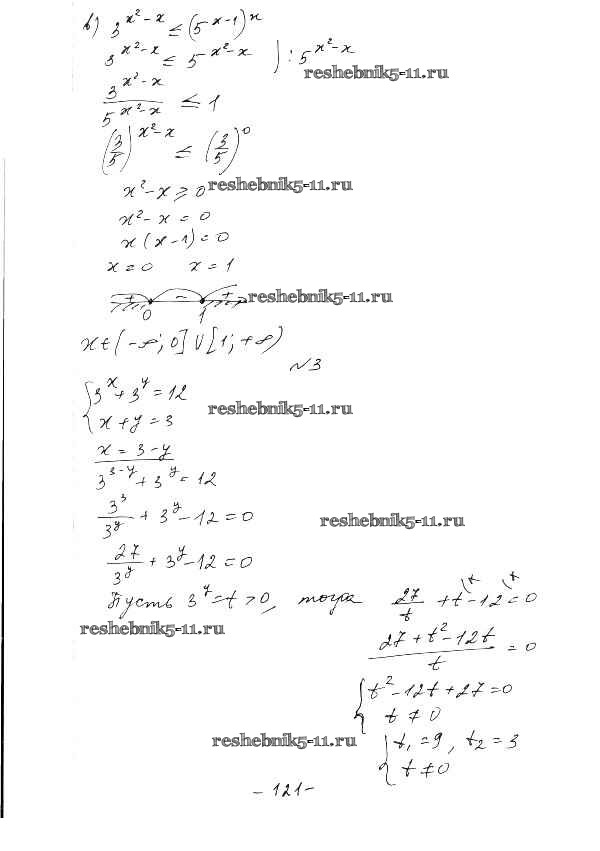 в) 3^(x²-x) ≤ (5^(x-1))^x
3^(x²-x) ≤ 5^(x²-x) ) : 5^(x²-x)
reshebnik5-11.ru
3^(x²-x) / 5^(x²-x) ≤ 1
(3/5)^(x²-x) ≤ (3/5)^0
x²-x ≥ 0 reshebnik5-11.ru
x²-x = 0
x(x-1) = 0
x = 0 x = 1
+ - + reshebnik5-11.ru
0 1
x ∈ (-∞; 0] ∪ [1; +∞)
№3
{ 3^x + 3^y = 12
x + y = 3 reshebnik5-11.ru
x = 3-y
3^(3-y) + 3^y = 12
3³/3^y + 3^y - 12 = 0 reshebnik5-11.ru
27/3^y + 3^y - 12 = 0
Пусть 3^y = t > 0, тогда 27/t + t - 12 = 0
reshebnik5-11.ru
(27 + t² - 12t)/t = 0
{ t² - 12t + 27 = 0
t ≠ 0
reshebnik5-11.ru { t₁ = 9, t₂ = 3
t ≠ 0
- 121 -